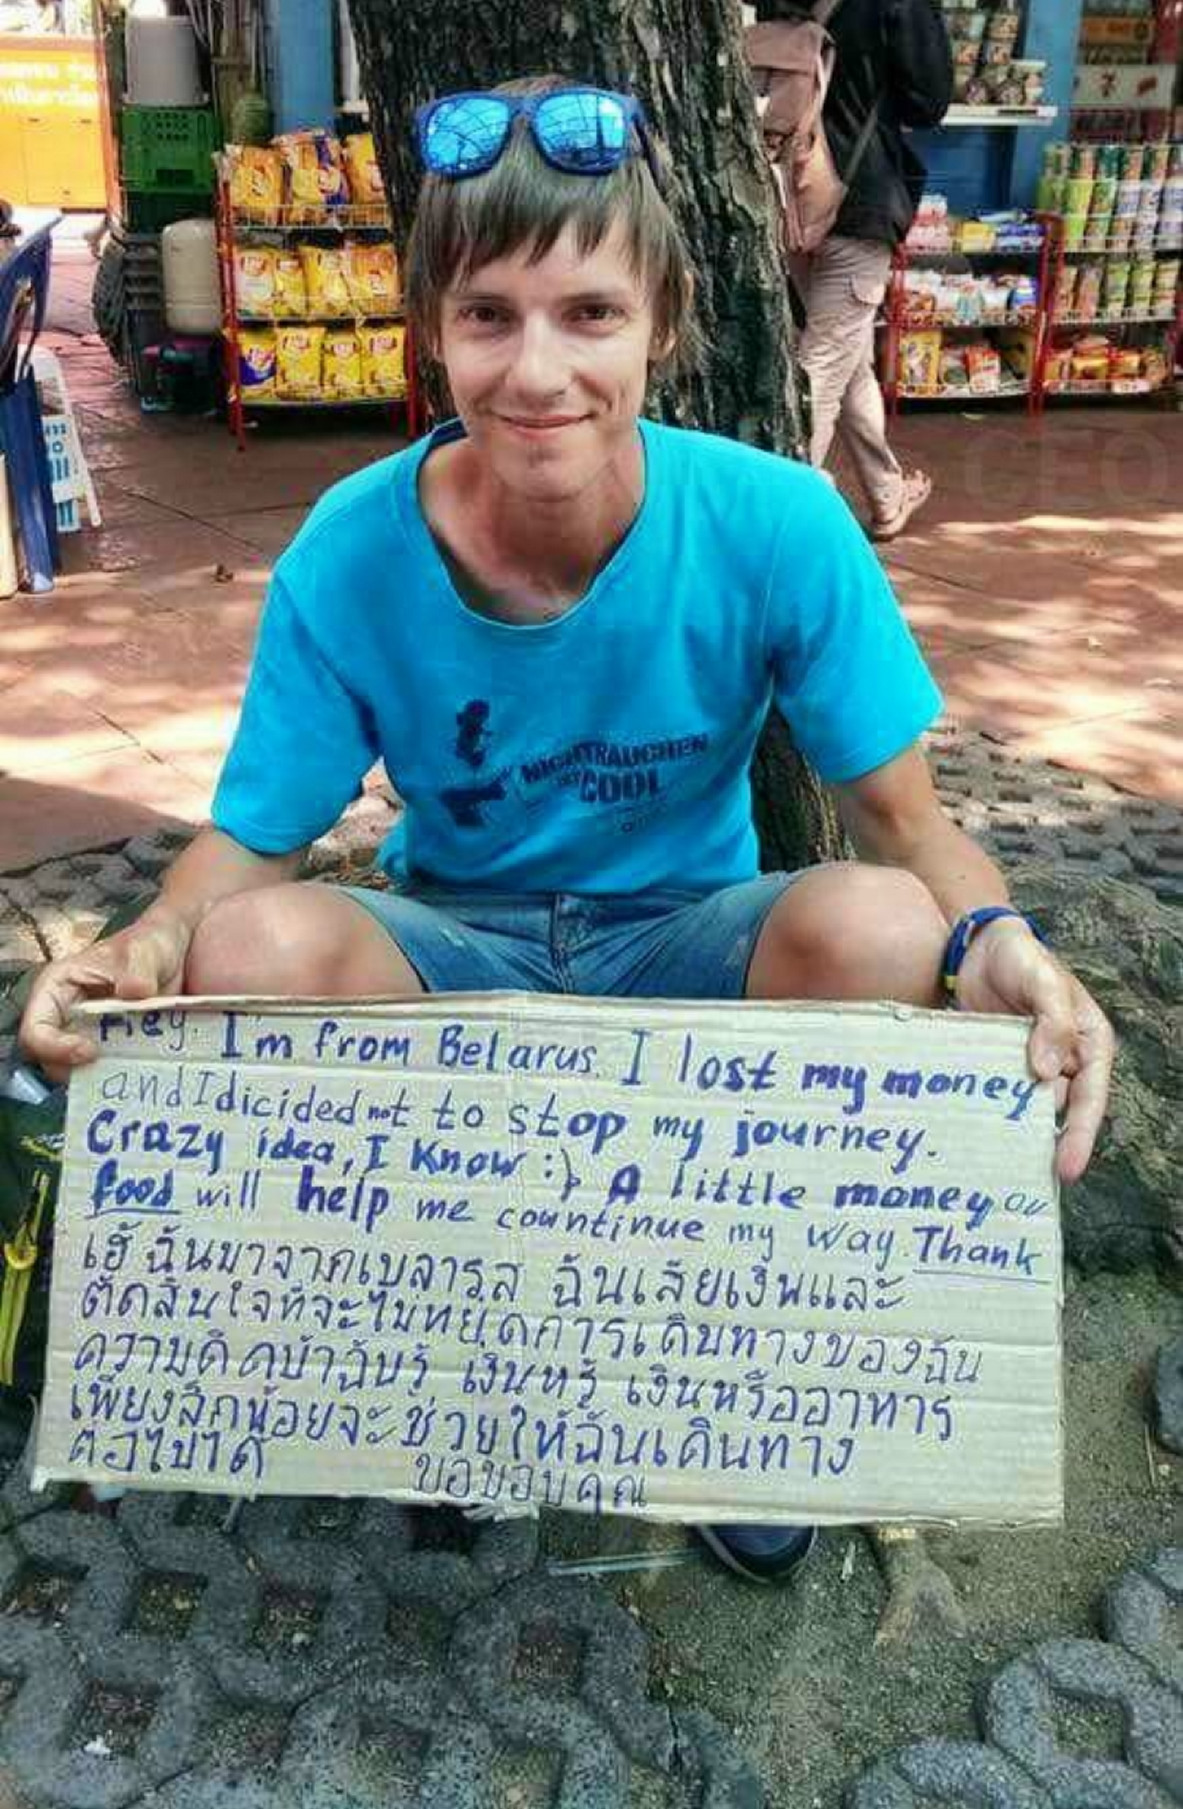 Hey. I'm from Belarus. I lost my money
and I dicided not to stop my journey.
Crazy idea, I Know :) A little money or
food will help me countinue my way. Thank
เฮ้ ฉันมาจากเบลารุส ฉันเสียเงินและ
ตัดสินใจที่จะไม่หยุดการเดินทางของฉัน
ความคิดบ้าฉันรู้ เงินหรู้ เงินหรืออาหาร
เพียงเล็กน้อยจะช่วยให้ฉันเดินทาง
ต่อไปได้ ขอขอบคุณ
NICHTRAUCHEN
IST COOL
CEO